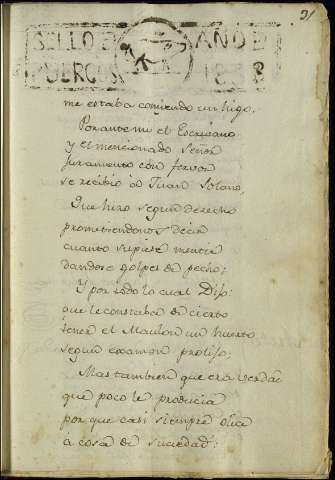 91
SELLO 3 AÑO D
PUERCO 18
me estaba comiendo un higo,
Por ante mi el Escribano
y el mencionado Señor
juramento con fervor
se recibio á Juan Solano,
Que hizo segun derecho
prometiendonos decir
cuanto supiese mentir
dandose golpes de pecho;
Y por todo lo cual Dijo
que le constaba de cierto
tener el Maulon un huerto
segun examen prolijo,
Mas tambien que era verdad
que poco le producia
por que casi siempre
a cosa de suciedad: